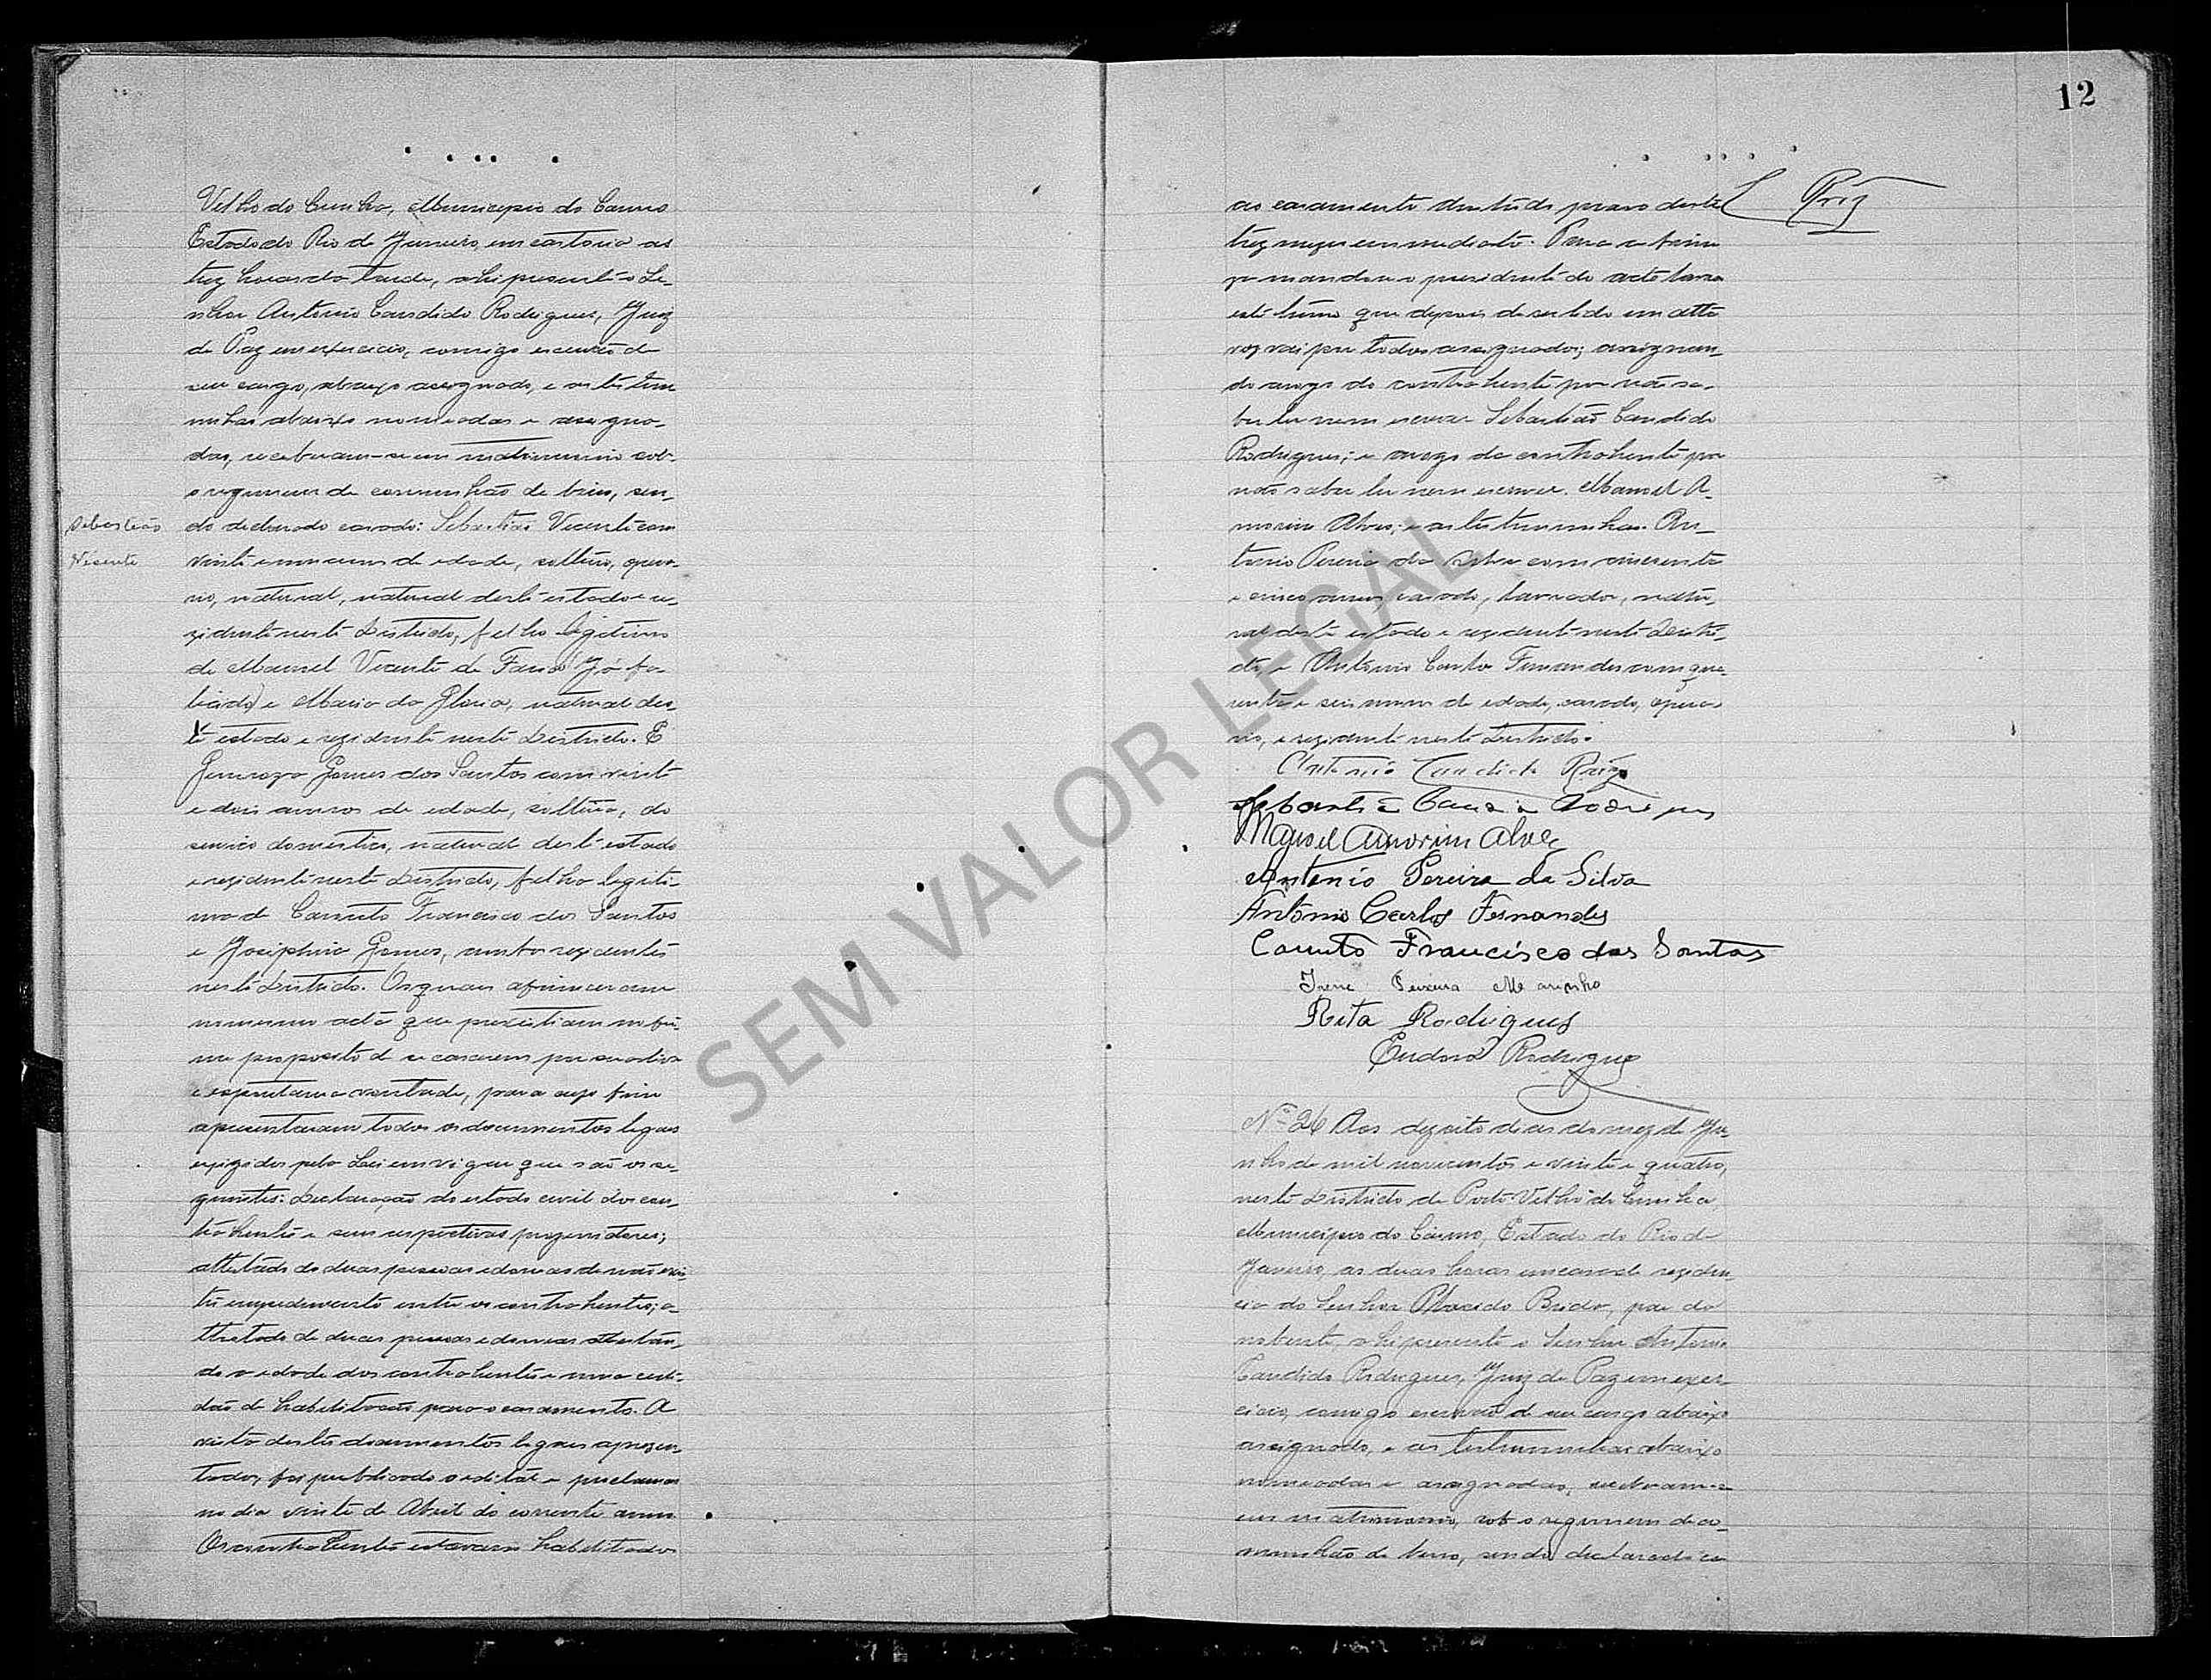 Velho do Cunha, Municipio do Carmo
Estado do Rio de Janeiro, em cartorio as
trez horas da tarde, ahi presente o Se-
nhor Antonio Candido Rodrigues, Juiz
de Paz em exercicio, comigo escrivão de
seu cargo, abaixo assignado, e as testem
unhas abaixo nomeadas e assigna-
das, receberam-se em matrimonio sob
o regimen de communhão de bens, sen-
do declarado casado: Sebastião Vicente com
vinte e um annos de edade, solteiro, opera-
rio, natural, natural deste estado e re-
zidente neste Districto, filho legitimo
de Manoel Vicente de Faria (Já fa-
lecido) e Maria da Gloria, natural des-
te estado e rezidente neste Districto. E
Gomes dos Santos com vinte
e dois annos de edade, solteira, do
serviço domestico, natural deste estado
e rezidente neste Districto, filha legiti-
ma de Canuto Francisco dos Santos
e Josephina Gomes, ambos rezidentes
neste Districto. Os quais afirmaram
no mesmo acto que persistiam no fir-
me proposito de se casarem por sua livre
e espontanea vontade, para cujo fim
apresentaram todos os documentos legaes
exigidos pela Lei em vigor que são os se-
guintes: Declaração do estado civil dos con-
trahentes e seus respectivos progenitores;
attestado de duas pessoas edoneas de não exis
tir impedimento entre os contrahentes; a-
ttestado de duas pessoas edoneas attestan-
do a edade dos contrahentes e uma certi-
dão de habilitação para o casamento. A
vista destes documentos legaes aprezen-
tados, foi publicado o edital e proclamas
no dia vinte de Abril do corrente anno.
Os contrahentes estavam habilitados
Sebastião
Vicente
12
ao casamento dentro do prazo deste
trez mezes em mediato. Para a firme
za mandou o presidente do acto lavrar
este termo que depois de ser lido em alta
voz vai por todos assignado; assignan-
do a rogo do contrahente por não sa-
ber ler nem escrever Sebastião Candido
Rodrigues; e a rogo da contrahente por
não saber ler nem escrever. Manoel A-
morim Alves; e as testemunhas. An-
tonio Pereira da Silva com cincoenta
e cinco annos casado, lavrador, natu-
ral deste estado e rezidente neste Distri-
cto e Antonio Carlos Fernandes com qua-
renta e seis annos de edade, casado, opera-
rio, e rezidente neste Districto.
Antonio Candido Rõiz
Manoel Amorim Alves
Antonio Pereira da Silva
Antônio Carlos Fernandes
Canuto Francisco dos Santos
Irene Teixeira Marinho
Rita Rodrigues
Rodrigues
Nº 26 Aos dezoito dias do mez de Ju-
nho de mil novecentos e vinte e quatro,
neste Districto de Porto Velho do Cunha,
Municipio do Carmo, Estado do Rio de
Janeiro, as duas horas em casa de reziden
cia do Senhor Placido Brido, pae do
nubente, ahi presente o Senhor Antonio
Candido Rodrigues, Juiz de Paz em exer-
cicio, comigo escrivão de seu cargo abaixo
assignado, e as testemunhas abaixo
nomeadas e assignadas, receberam-se
em matrimonio, sob o regimen de co-
munhão de bens, sendo declarado ca
SEM VALOR LEGAL